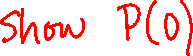 Show P(0)